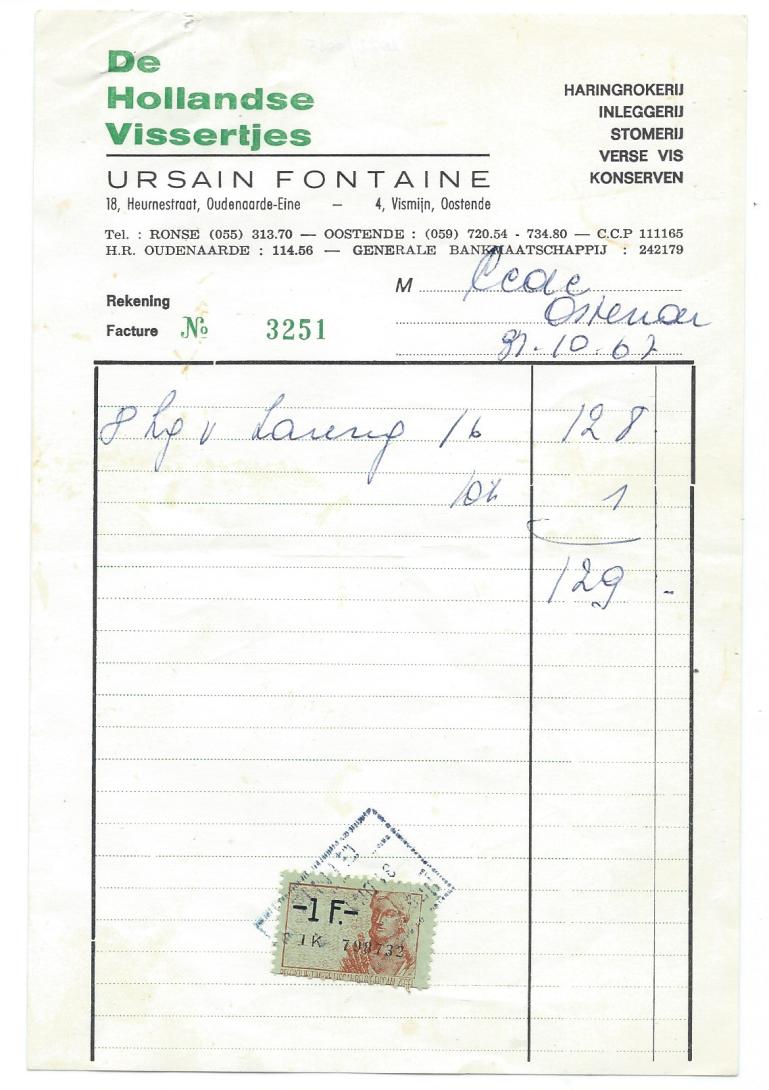 De
Hollandse
Vissertjes
HARINGROKERIJ
INLEGGERIJ
STOMERIJ
VERSE VIS
KONSERVEN
URSAIN FONTAINE
18, Heurnestraat, Oudenaarde-Eine — 4, Vismijn, Oostende
Tel. : RONSE (055) 313.70 — OOSTENDE : (059) 720.54 - 734.80 — C.C.P 111165
H.R. OUDENAARDE : 114.56 — GENERALE BANKMAATSCHAPPIJ : 242179
M
Rekening
Facture No 3251
10.67
8 kg v 16 128
1
129 -
-1 F.-
708732